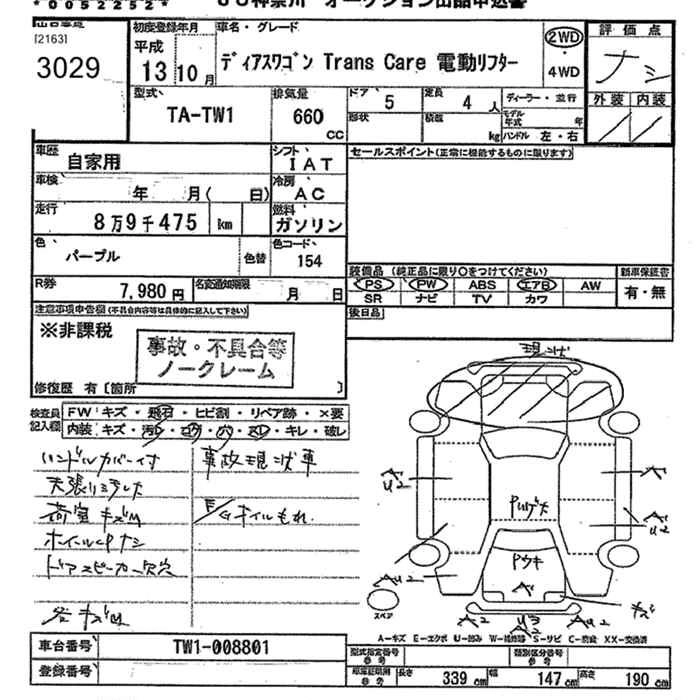 *0052252*
JU神奈川 オークション出品申込書
[2163]
3029
初度登録年月
平成
13年10月
車名・グレード
ディアスワゴン Trans Care 電動リフター
2WD
・
4WD
評価点
ナシ
外装 内装
型式
TA-TW1
排気量
660
CC
ドア 5
定員 4 人
ディーラー・並行
形状
積載 kg
モデル年式 年
ハンドル 左・右
車歴
自家用
シフト
IAT
セールスポイント(正常に機能するものに限ります)
車検
年 月( 日)
冷房
AC
走行
8万9千475 km
燃料
ガソリン
色
パープル
色替
色コード
154
装備品 (純正品に限り○をつけてください)
新車保証書
PS PW ABS エアB AW
有・無
SR ナビ TV カワ
R券
7,980 円
名変通知期限
月 日
後日品
注意事項申告欄(不具合内容等は具体的に記入して下さい)
※非課税
事故・不具合等
ノークレーム
修復歴 有〔箇所 〕
検査員
記入欄
FW キズ・飛石・ヒビ割・リペア跡・×要
内装 キズ・汚レ・コゲ・穴・スレ・キレ・破レ
ハンドルカバー付
天張リヨゴレ大
荷室キズM
ホイールCPナシ
ドアスピーカー欠穴
各キズM
事故現状車
E/Gオイルもれ
現状
A
U2
A
U2
A
U2
A
U2
Pウキ
A
キズ
A2
U3
A2
A
U2
スペア
A-キズ E-エクボ U-凹み W-補修跡 S-サビ C-腐食 XX-交換済
車台番号
TW1-008801
登録番号
型式指定番号
参考
類別区分番号
参考
車庫証明用
参考
長さ 339 cm 幅 147 cm 高さ 190 cm